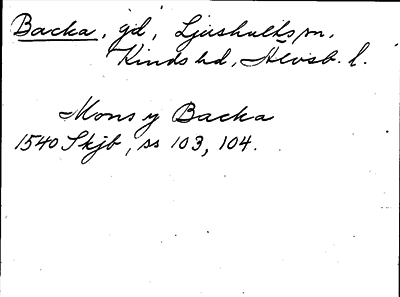 Backa, gd, Ljushults sn,
Kinds hd, Älvsb. l.
Mons y Backa
1540 Skjb, ss 103, 104.